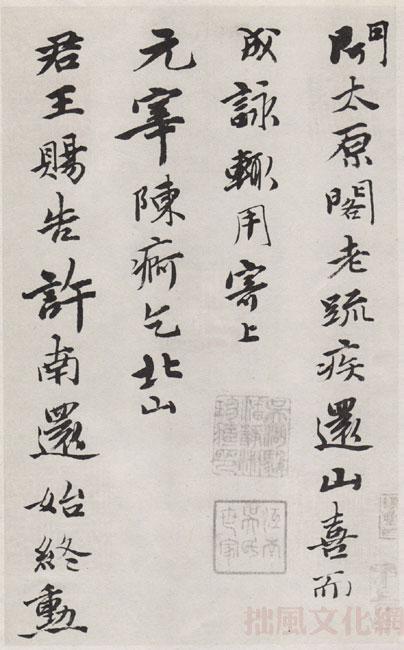 聞太原閣老疏疾還山喜而
成詠輒用寄上
元宰陳痾乞北山
君王賜告許南還始終勳
江南吳氏世家
拙風文化網